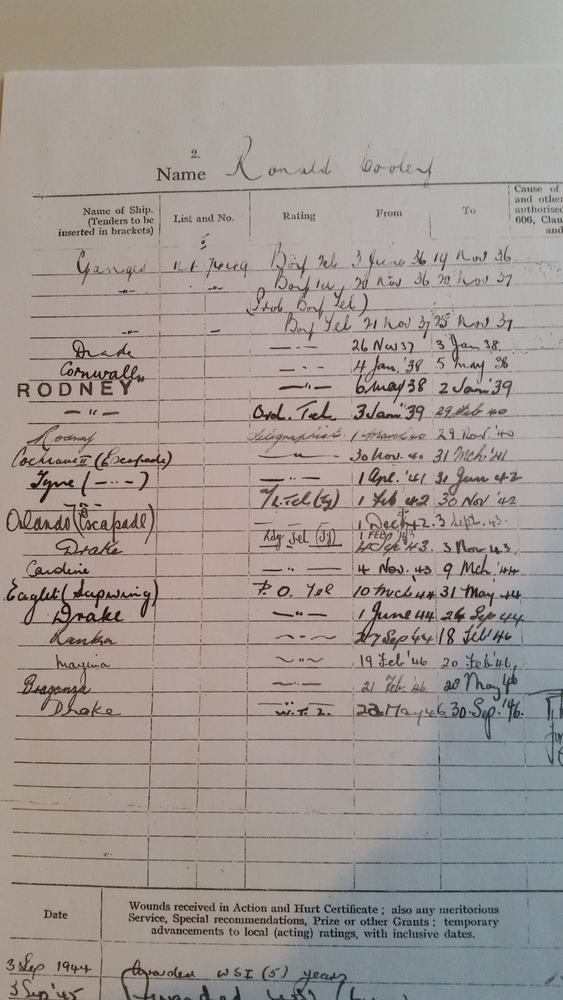 2.
Name Ronald Cooley
Cause of
and other
authorised
606, Clau
and
Name of Ship.
(Tenders to be
inserted in brackets)
List and No.
Rating
From
To
Ganges Boy Tel 3 June 36 19 Nov 36
—"— —"— 20 Nov 36 20 Nov 37
Boy Tel)
—"— — Boy Tel 21 Nov 37 25 Nov 37
Drake —·— 26 Nov 37 3 Jan 38.
Cornwall —·— 4 Jan. '38 5 May '38
RODNEY —"— 6 May 38 2 Jan '39
—"— Ord. Tel. 3 Jan '39 29 Feb 40
Rodney Telegraphist 1 March 40 29 Nov '40
Cochrane II (Escapade) —"— 30 Nov. 40 31 Mch '41
Tyne (—··—) —·— 1 Apl. '41 31 Jan 42
Tel (Ty) 1 Feb 42 30 Nov '42
Orlando (Escapade) — — 1 Dec 42. 3 Sept. 43.
Ldg Tel 1 FEB
Drake 43. 3 Nov 43.
Caroline —··— 4 Nov. '43 9 Mch '44
Eaglet (Lapwing) P.O. Tel 10 Mch 44 31 May 44
Drake —"— 1 June 44 26 Sep 44
Lanka —"— 27 Sep 44 18 Feb '46
Mayina —"— 19 Feb '46 20 Feb '46.
Braganza —··— 21 Feb. '46 May 46
Drake —··— May 46 30 Sep. '46.
Date
Wounds received in Action and Hurt Certificate ; also any meritorious
Service, Special recommendations, Prize or other Grants ; temporary
advancements to local (acting) ratings, with inclusive dates.
3 Sep 1944 Awarded WSI (5) years
3 Sep '45 Awarded WSI